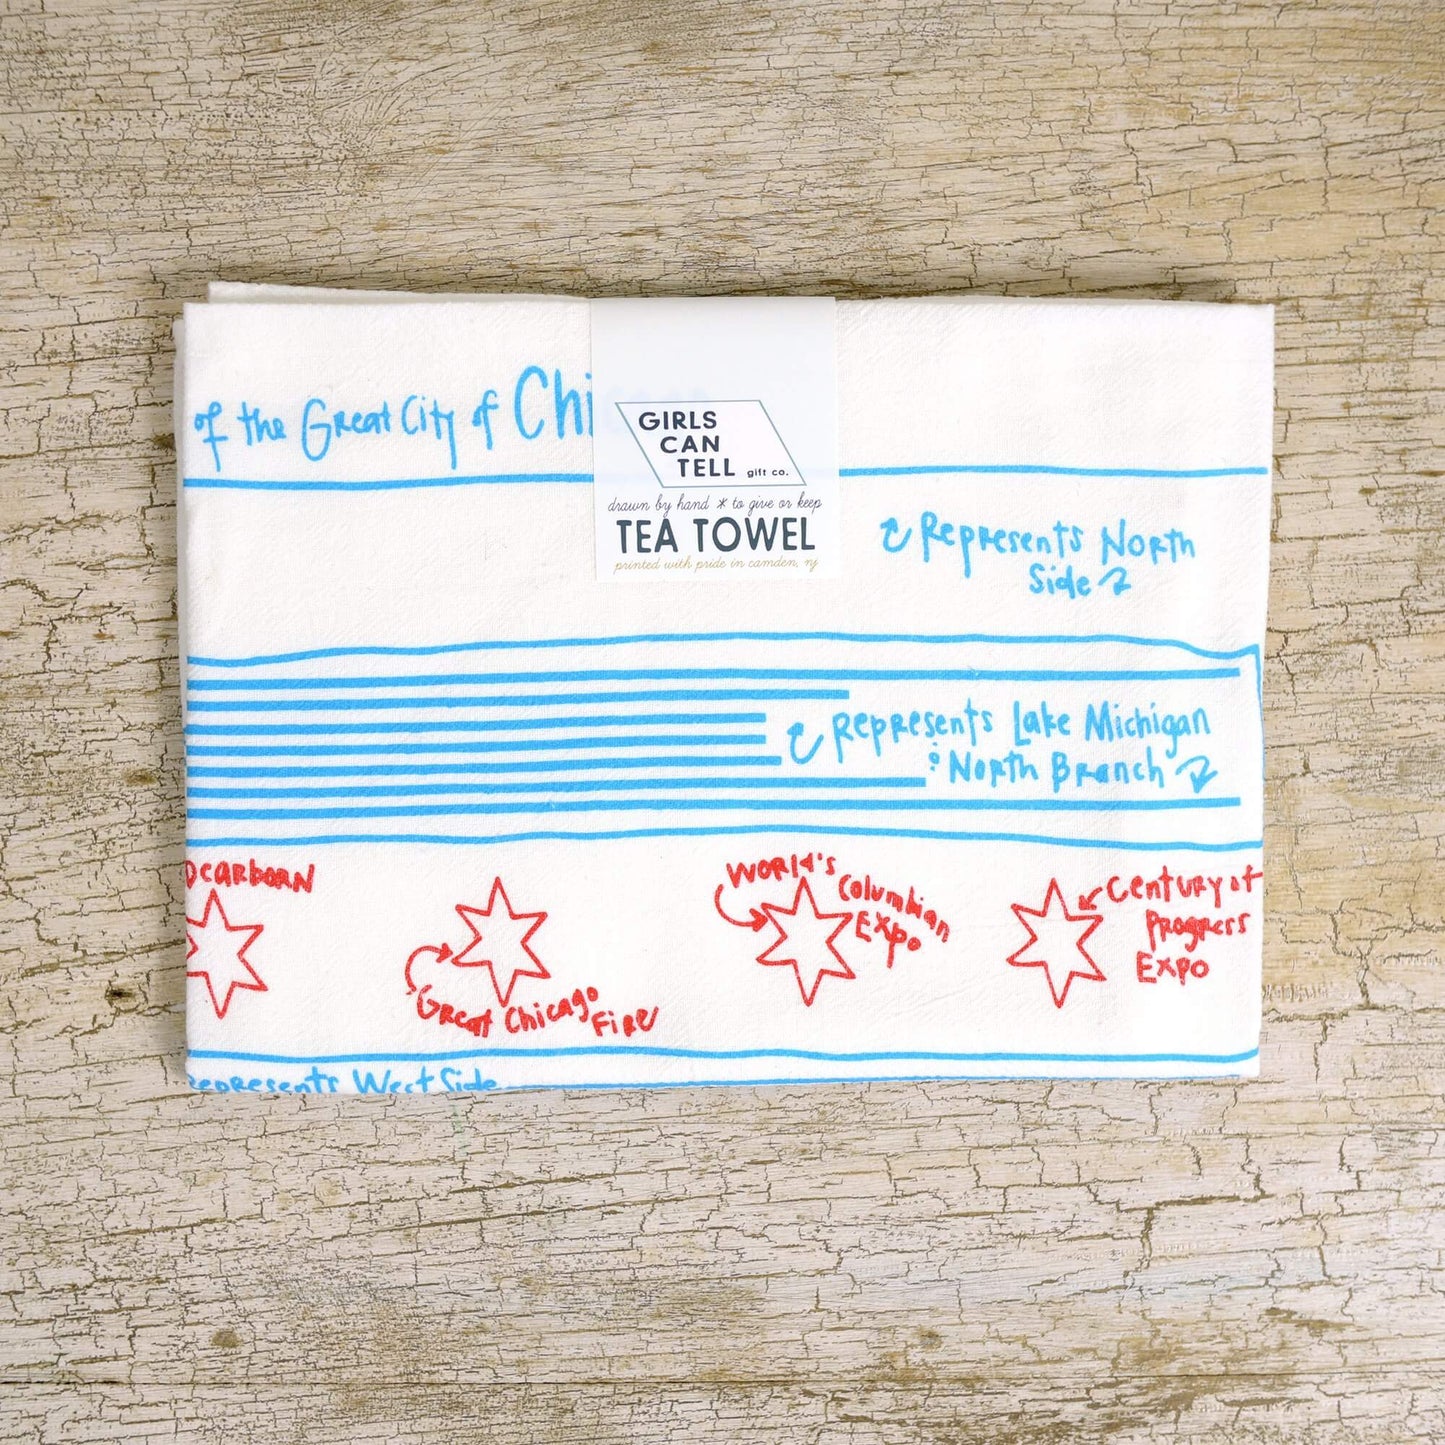 of the Great City of Chi
GIRLS
CAN
TELL gift co.
drawn by hand * to give or keep
TEA TOWEL
printed with pride in camden, nj
Represents North
Side
Represents Lake Michigan
& North Branch
Dearborn
Great Chicago
Fire
World's
Columbian
Expo
Century of
Progress
Expo
represents West Side